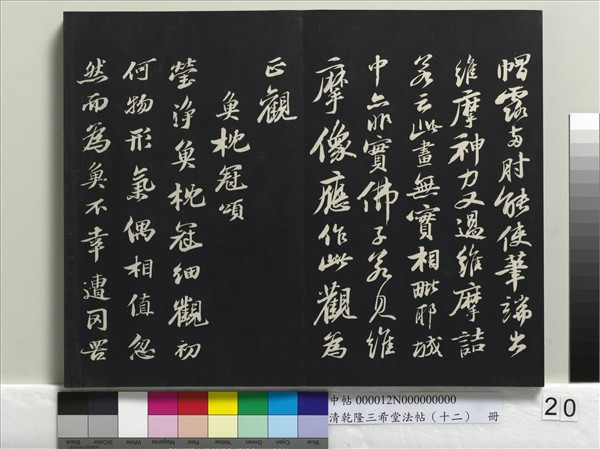 帽露兩肘能使筆端出
維摩神力又過維摩詰
若云此畫無實相毗耶城
中亦非實佛子若見維
摩像應作此觀為
正觀
魚枕冠頌
瑩淨魚枕冠細觀初
何物形氣偶相值忽
然而為魚不幸遭罔罟
中帖 000012N000000000
清乾隆三希堂法帖（十二） 冊
20
Black
3/Color
White
Magenta
Red
Yellow
Green
Cyan
Blue